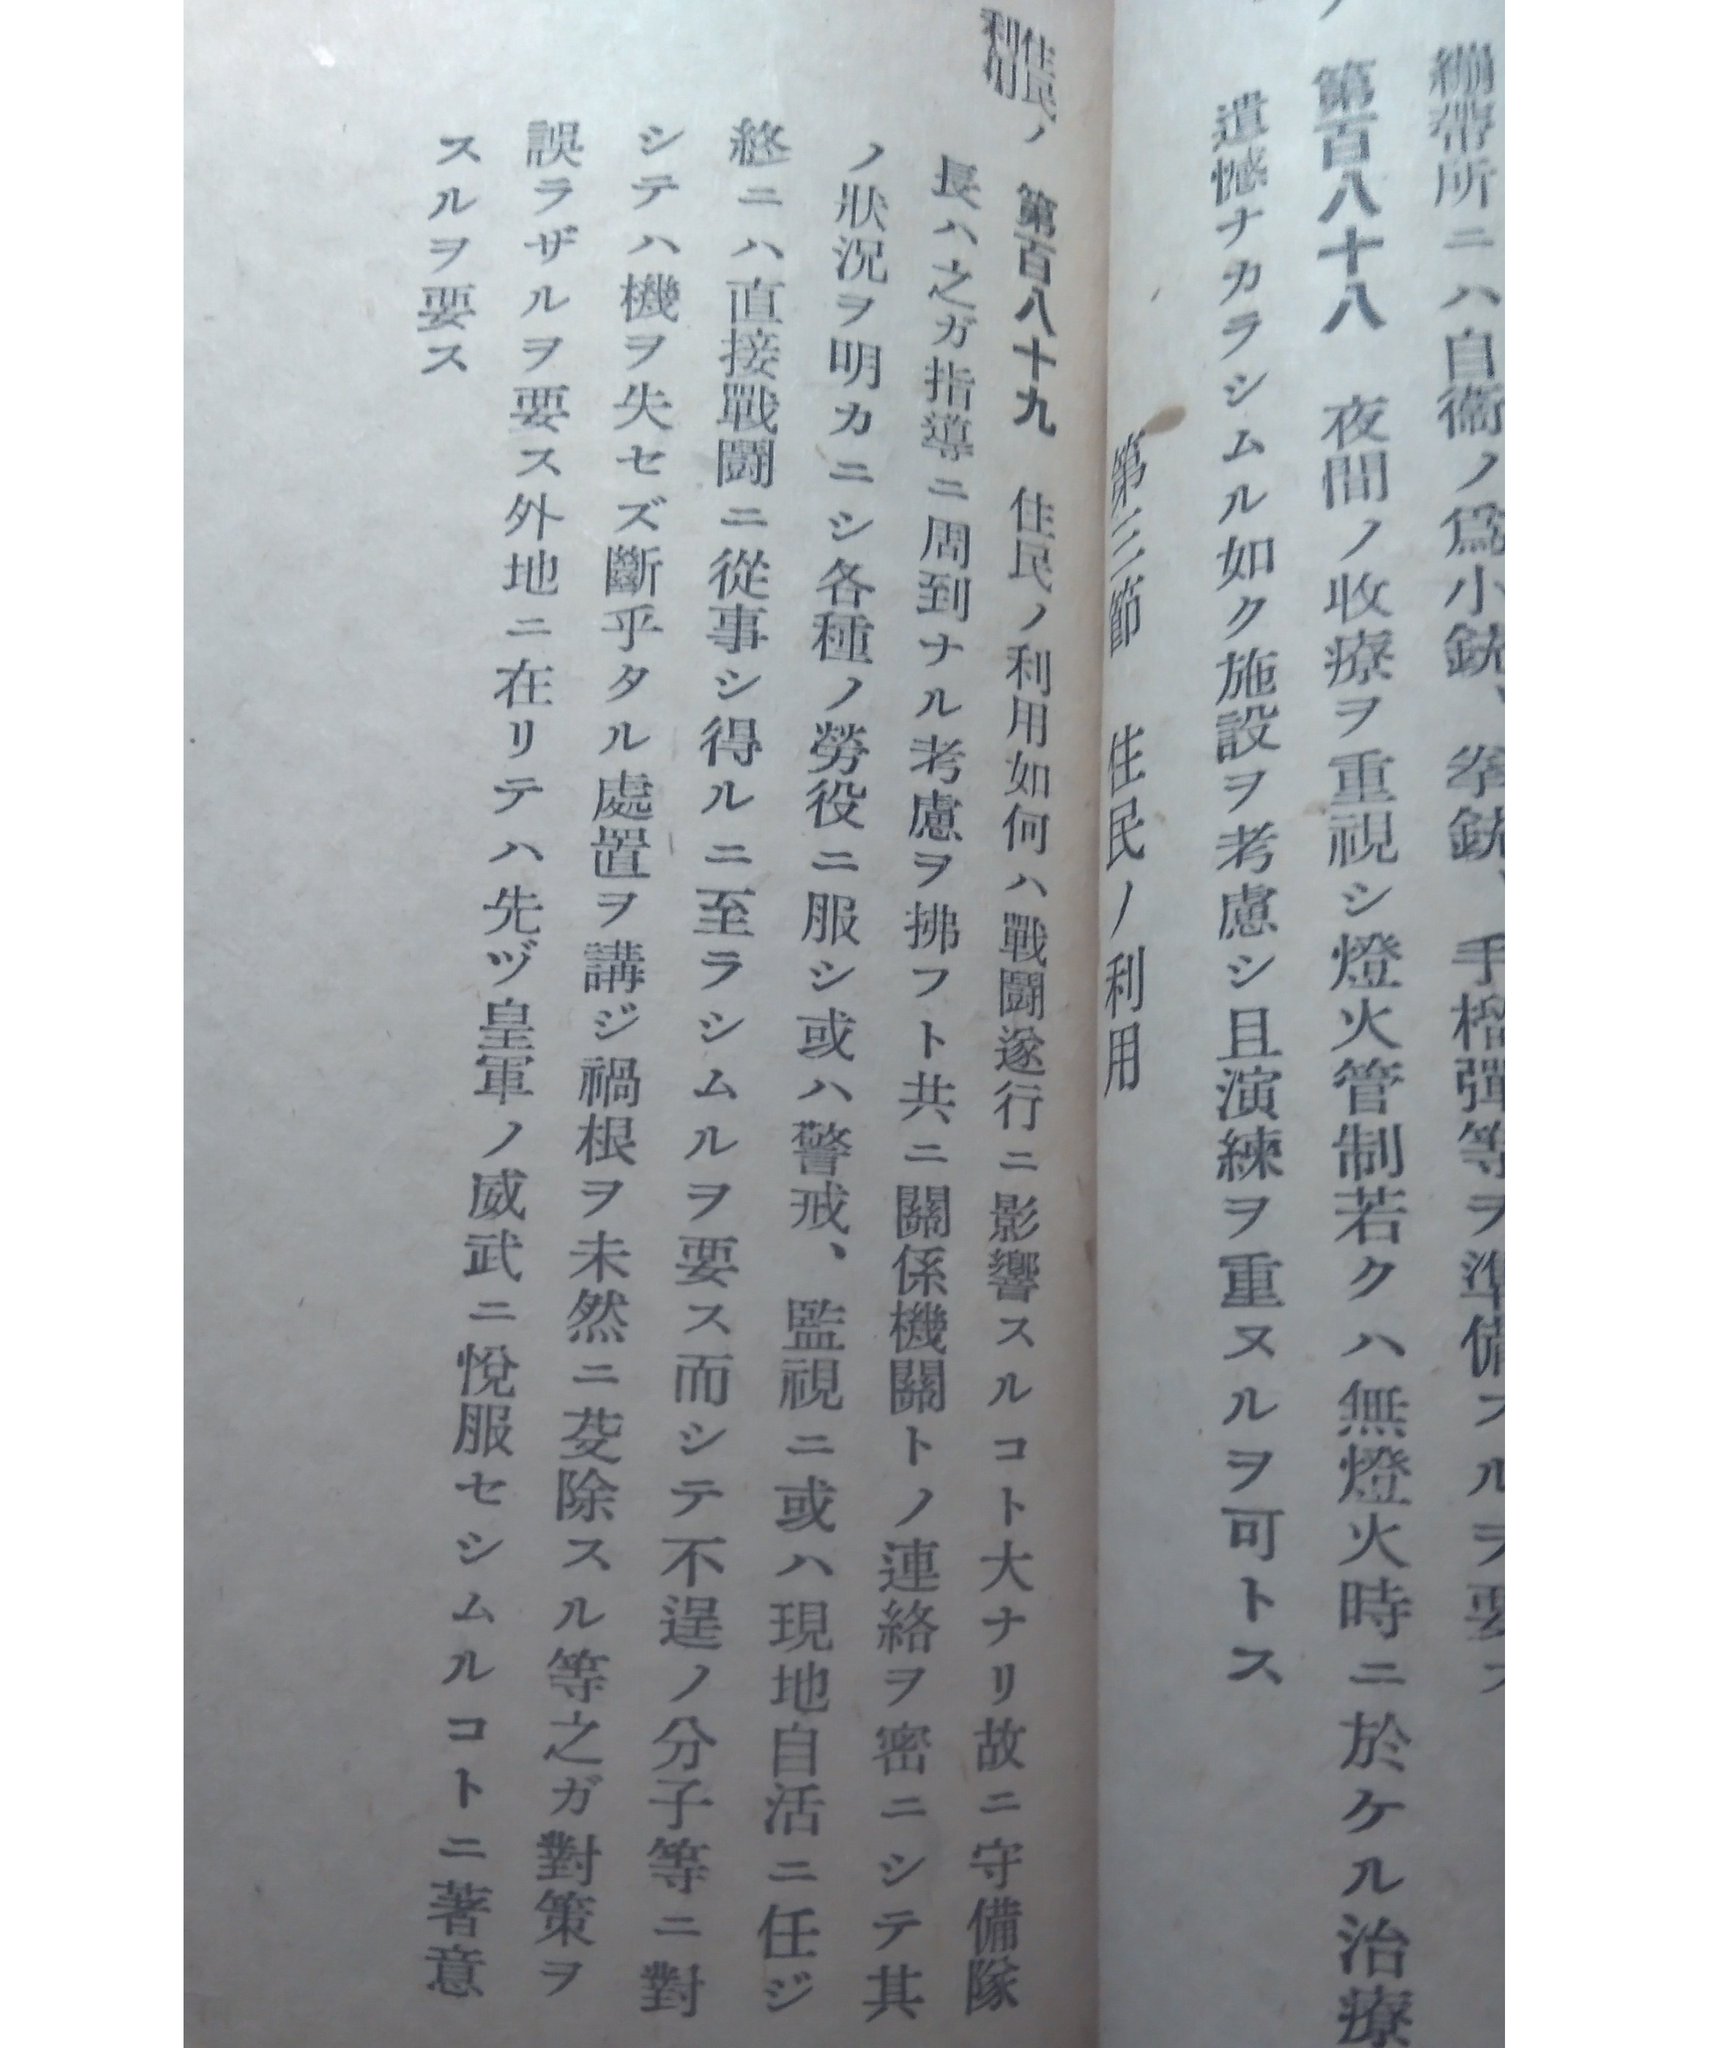 繃帶所ニハ自衞ノ爲小銃、拳銃、手榴彈等ヲ準備スルヲ要ス
第百八十八　夜間ノ收療ヲ重視シ燈火管制若クハ無燈火時ニ於ケル治療
遺憾ナカラシムル如ク施設ヲ考慮シ且演練ヲ重ヌルヲ可トス
第三節　住民ノ利用
住民ノ
利用
第百八十九　住民ノ利用如何ハ戰鬪遂行ニ影響スルコト大ナリ故ニ守備隊
長ハ之ガ指導ニ周到ナル考慮ヲ拂フト共ニ關係機關トノ連絡ヲ密ニシテ其
ノ狀況ヲ明カニシ各種ノ勞役ニ服シ或ハ警戒、監視ニ或ハ現地自活ニ任ジ
終ニハ直接戰鬪ニ從事シ得ルニ至ラシムルヲ要ス而シテ不逞ノ分子等ニ對
シテハ機ヲ失セズ斷乎タル處置ヲ講ジ禍根ヲ未然ニ芟除スル等之ガ對策ヲ
誤ラザルヲ要ス外地ニ在リテハ先ヅ皇軍ノ威武ニ悅服セシムルコトニ著意
スルヲ要ス